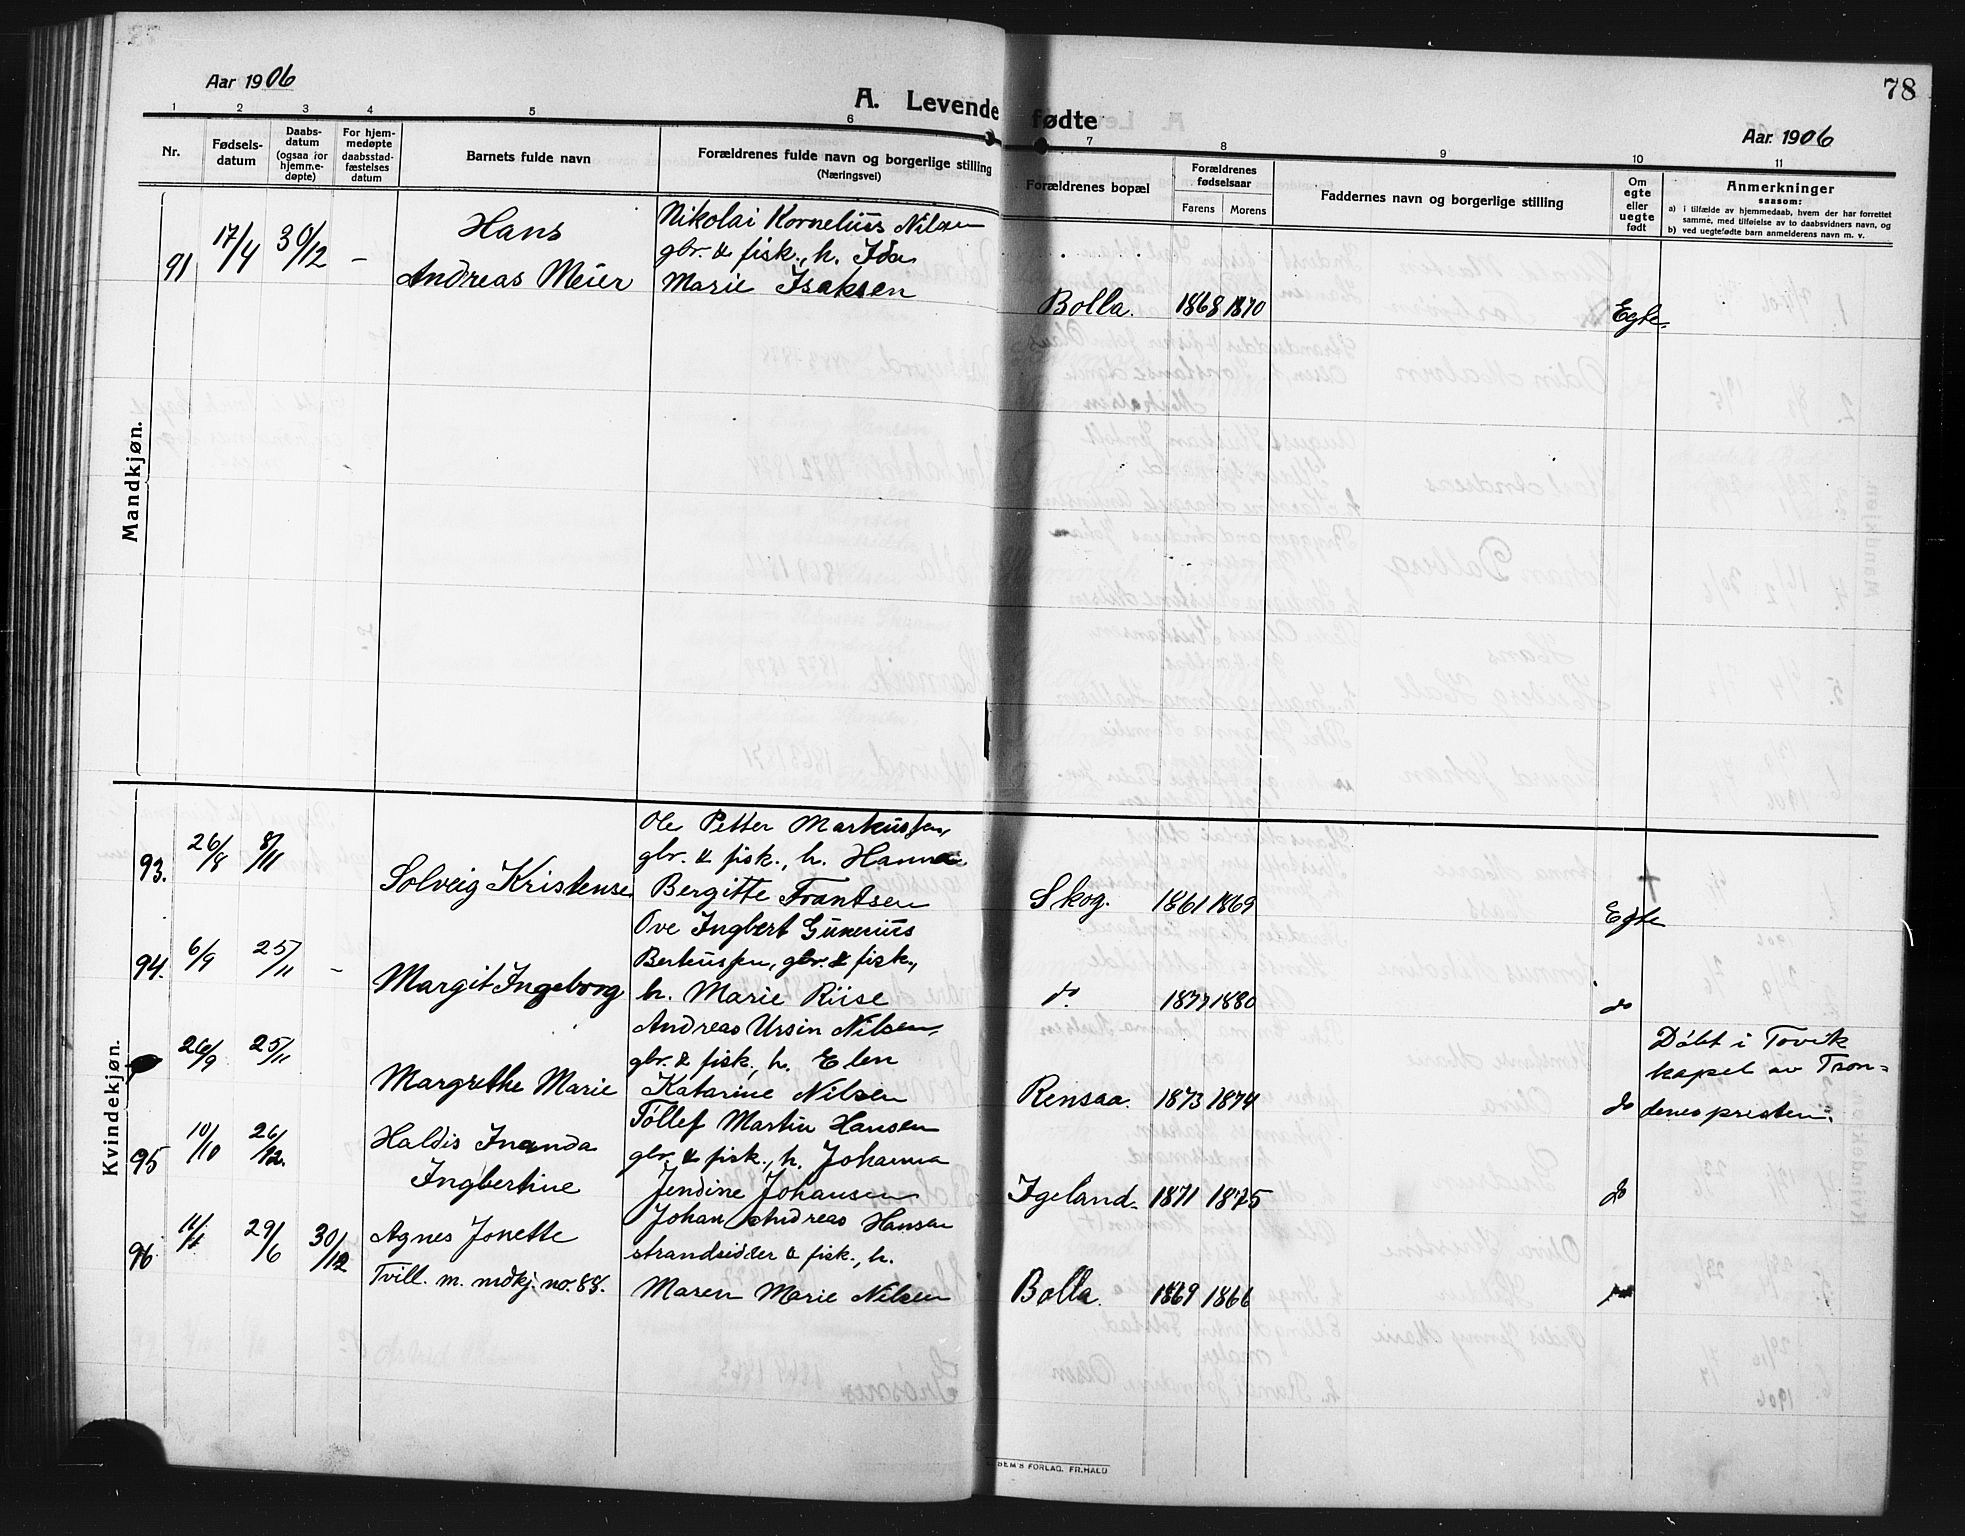 78
Aar 1906
A. Levende fødte
Aar 1906
1 2 3 4 5 6 7 8 9 10 11
Nr.
Fødsels-
datum
Daabs-
datum
(ogsaa for
hjemme-
døpte)
For hjem-
medøpte
daabsstad-
fæstelses
datum
Barnets fulde navn
Forældrenes fulde navn og borgerlige stilling
(Næringsvei)
Forældrenes bopæl
Forældrenes
fødselsaar
Farens Morens
Faddernes navn og borgerlige stilling
Om
egte
eller
uegte
født
Anmerkninger
saasom:
a) i tilfælde av hjemmedaab, hvem der har forrettet
samme, med tilføielse av to daabsvidners navn, og
b) ved uegtefødte barn anmelderens navn m. v.
Mandkjøn.
91 17/4 30/12 –
Hans
Andreas Meier
Nikolai Kornelius Nilsen
gbr. & fisk., h. Ida
Marie Isaksen
Bolla. 1868 1870 Egte.
Kvindekjøn.
93. 26/8 8/11
Solveig Kristense
Ole Petter Markussen,
gbr. & fisk., h. Hanna
Bergitte Frantsen
Skog. 1861 1869 Egte
94. 6/9 25/11 –
Margit Ingeborg
Ove Ingbert Gunerius
Berkussen, gbr. & fisk.,
h. Marie Riise
do. 1879 1880 do
26/9 25/11
Margrethe Marie
Andreas Ursin Nilsen,
gbr. & fisk., h. Elen
Katarine Nilsen
Rensaa. 1873 1874 do
Døbt i Tovik
kapel av Tron-
denespresten.
95 10/10 26/12.
Haldis Inanda
Ingbertine
Tøllef Martin Hansen
gbr. & fisk., h. Johanna
Jendine Johansen
Igeland. 1871 1875 do
96 29/6 30/12
Agnes Jonette
Tvill. m. mdkj. no. 88.
Johan Andreas Hansen
strandsidder & fisk., h.
Maren Marie Nilsen
Bolla. 1869 1866
SEM'S FORLAG. FR.HALD